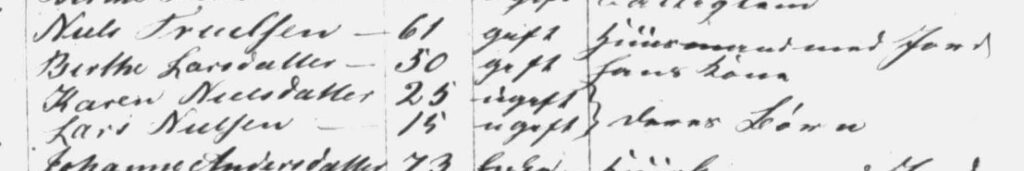 Niels Truelsen — 61 gift Huusmand med Jord
Berthe Larsdatter — 50 gift hans Kone
Karen Nielsdatter 25 ugift
Lars Nielsen — 15 ugift } deres Børn
Johanne Andersdatter 73